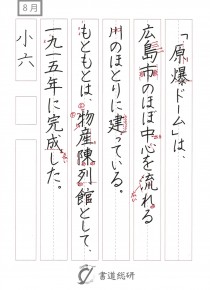 8月
「原爆ドーム」は、
広島市のほぼ中心を流れる
川のほとりに建っている。
もともとは、物産陳列館として、
一九一五年に完成した。
小六
書道総研